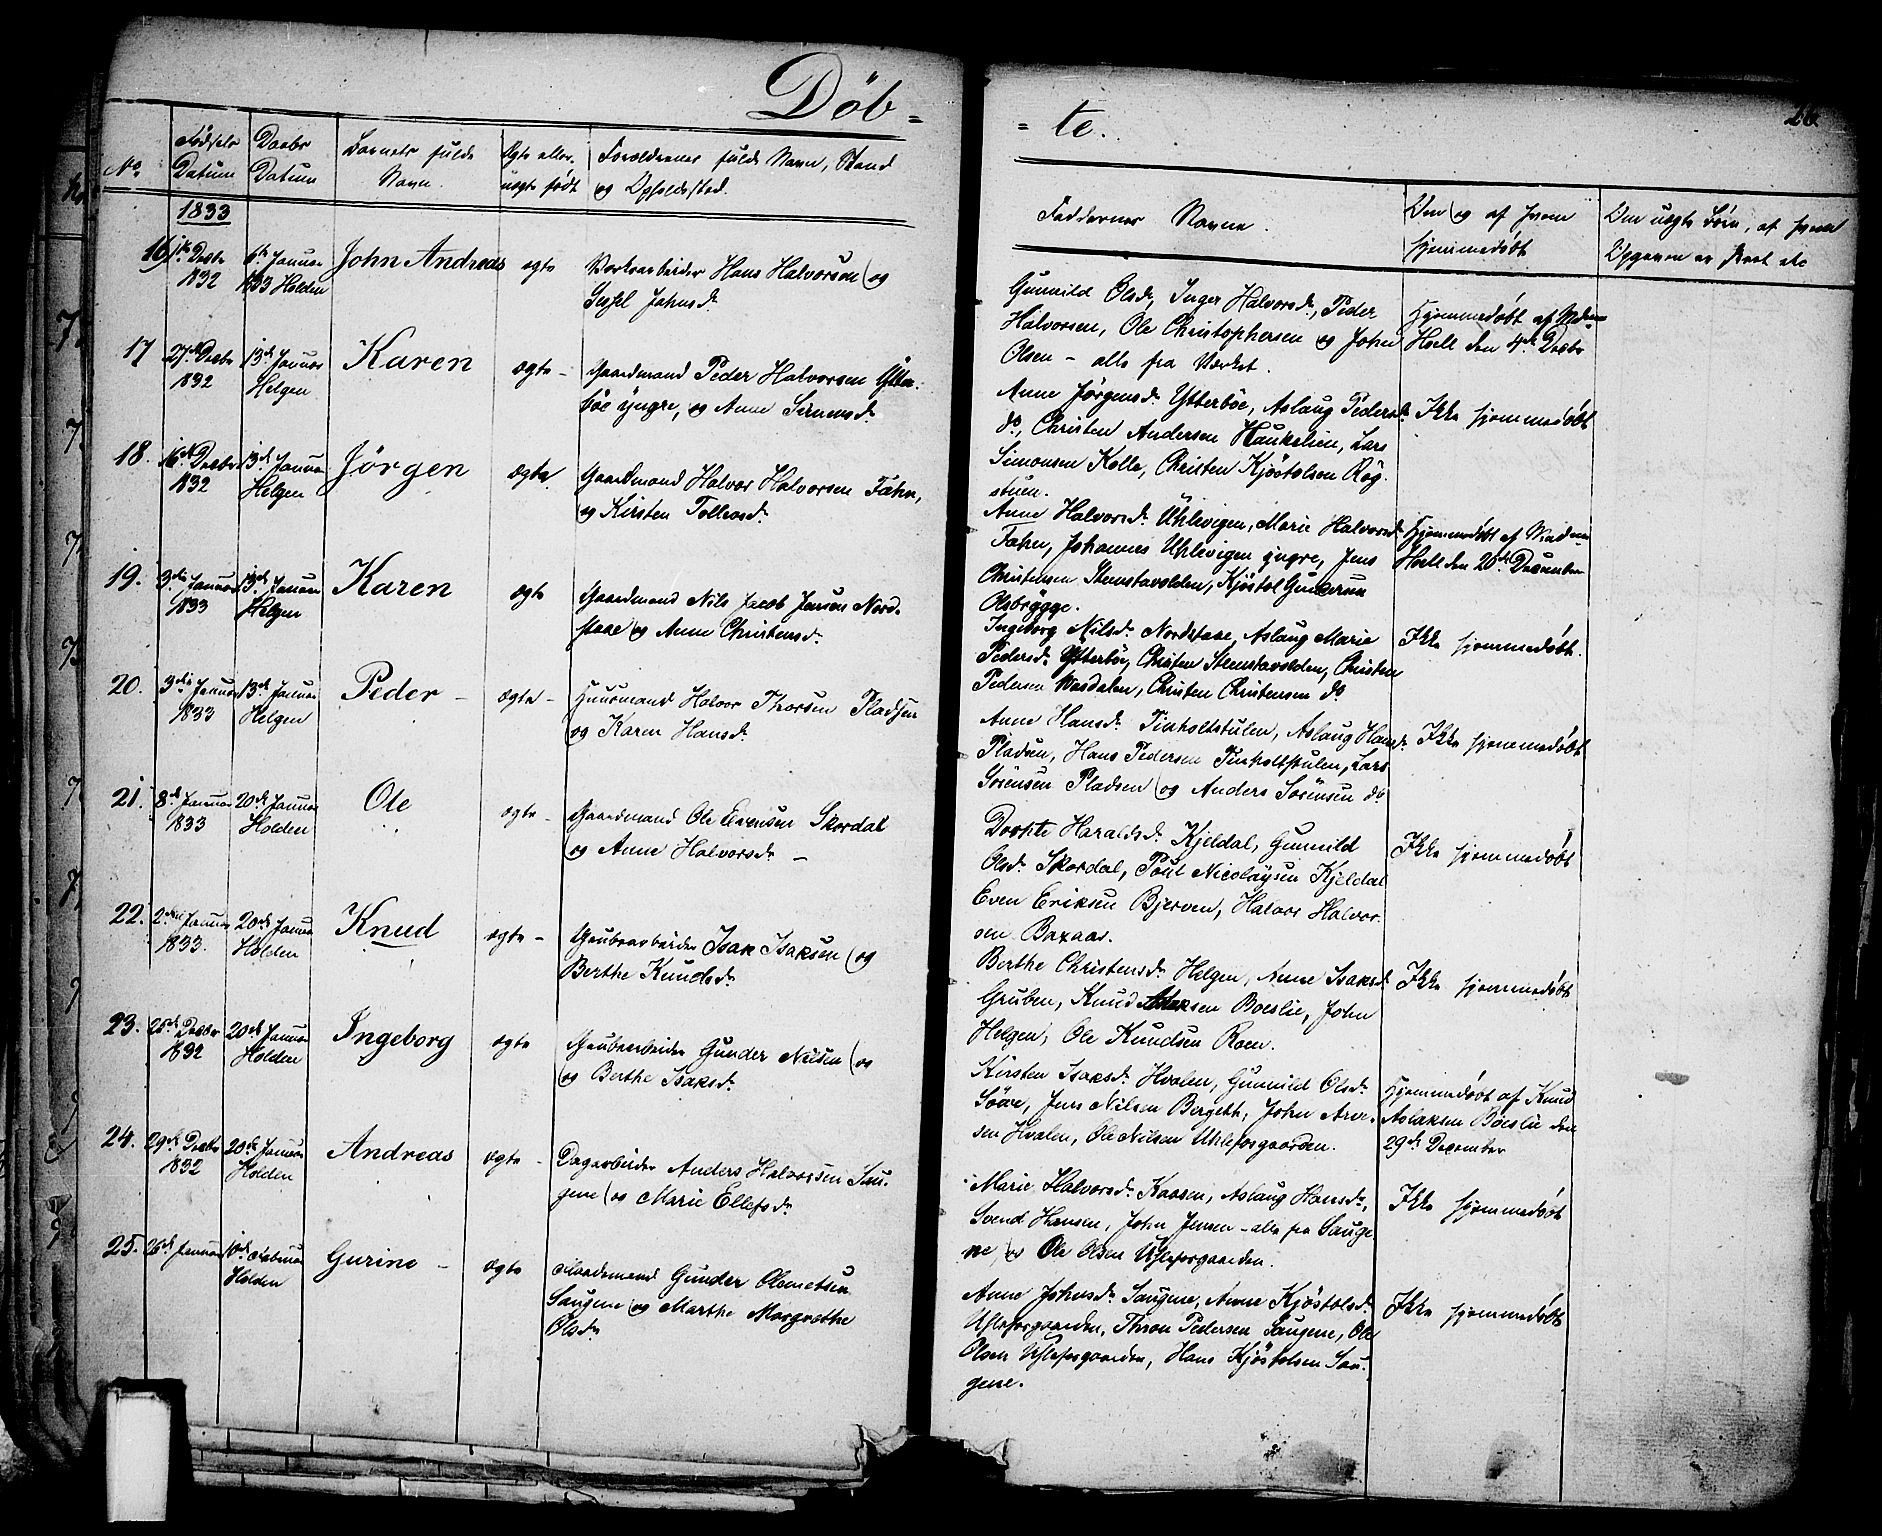 Döb=
= te.
No
Fødsels Datum
Daabs Datum
Barnets fulde Navn.
Ægte eller uægte født
Forældrenes fulde Navn, Stand og Opholdssted.
Faddernes Navne.
Om og af hvem hjemmedøbt
1833
16, 1ste Decbr 1832
6te Januar 1833 Holden
John Andreas
ægte
Værksarbeider Hans Halvorsen og
Johnsdr
Gunnild Olsdr, Inger Halvorsdr, Peder
Halvorsen, Ole Christophersen og John
Olsen – alle fra Værket.
Hjemmedøbt af Mdme
Hoell den 4de Decbr
17
27de Decbr 1832
13de Januar Helgen
Karen
ægte –
Gaardmand Peder Halvorsen Ytter-
böe yngre, og Anne Simensdr
Anne Jørgensdr Ytterböe, Aslaug Pedersdr
do, Christen Andersen Haukelien, Lars
Simonsen Kolle, Christen Kjöstolsen Røg-
stuen.
Ikke hjemmedøbt
18.
16de Decbr 1832
13de Januar Helgen
Jörgen
ægte
Gaardmand Halvor Halvorsen Fahn,
og Kirsten Tollevsdr
Anne Halvorsdr Uhlevigen, Marie Halvorsdr
Fahn, Johannes Uhlevigen yngre, Jens
Christensen Steenstavolden, Kjöstol Gundersen
Olsbrygge.
Hjemmedøbt af Madme
Hoell den 20de December
19.
3die Januar 1833
13de Januar Helgen
Karen
ægte
Gaardmand Nils Jacob Jensen Nord-
staae og Anne Christensdr
Ingeborg Nilsdr Nordstaae, Aslaug Marie
Pedersdr Ytterböe, Christen Steenstavolden, Christen
Pedersen Vasdalen, Christen Christensen do
Ikke hjemmedøbt.
20.
3die Januar 1833
13de Januar Helgen
Peder –
ægte –
Huusmand Halvor Thorsen Pladsen
og Karen Hansdr
Anne Hansdr Tinholtstulen, Aslaug Hansdr
Pladsen, Hans Pedersen Tinholtstulen, Lars
Sørensen Pladsen og Anders Sørensen do
Ikke hjemmedøbt
21.
8de Januar 1833
20de Januar Holden
Ole
ægte –
Gaardmand Ole Evensen Skordal
og Anne Halvorsdr –
Dorthe Haraldsdr Kjeldal, Gunnild
Olsdr Skordal, Poul Nicolaysen Kjeldal
Even Eriksen Bjerven, Halvor Halvor-
sen Bazaar.
Ikke hjemmedøbt
22.
2den Januar 1833.
20de Januar Holden
Knud
ægte –
Grubearbeider Isak Isaksen og
Berthe Knudsdr
Berthe Christensdr Helgen, Anne Isaksdr
Gruben, Knud Aslaksen Boeslie, John
Helgen, Ole Knudsen Roen.
Ikke hjemmedøbt
23.
25de Decbr 1832
20de Januar Holden
Ingeborg
ægte
Grubearbeider Gunder Nilsen og
og Berthe Isaksdr
Kirsten Isaksdr Hvalen, Gunnild Olsdr
Søve, Jens Nilsen Bergeth, John Arve-
sen Hvalen, Ole Nilsen Uhlefosgaarden.
Hjemmedøbt af Knud
Aslaksen Böeslie den
29de December
24.
29de Decbr 1832
20de Januar Holden
Andreas
ægte –
Dagarbeider Anders Halvorsen Sau-
gene og Marie Ellefsdr
Marie Halvorsdr Kaasen, Aslaug Hansdr,
Svend Hansen, John Jensen – alle fra Sauge-
ne, og Ole Olsen Uhlefosgaarden.
Ikke hjemmedøbt
25.
26de Januar
10de Februar Holden
Gurine –
ægte
Gunder
Saugene og Marthe Margrethe
Olsdr
Anne Johnsdr Saugene, Anne Kjöstolsdr
Uhlefosgaarden, Thron Pedersen Saugene, Ole
Olsen Uhlefosgaarden, Hans Kjöstolsen Sau-
gene.
Ikke hjemmedøbt